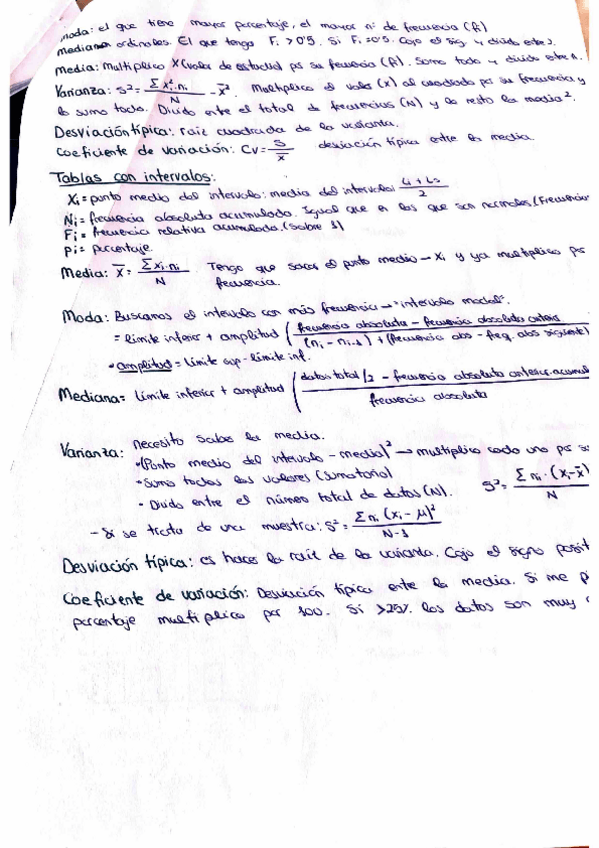 Moda: el que tiene mayor porcentaje, el mayor nº de frecuencia (fi)
Mediana → ordinales. El que tenga Fi > 0'5. Si Fi = 0'5. Cojo el sig. y divido entre 2.
Media: Multiplico X (valor de estudio) por su frecuencia (fi). Sumo todo y divido entre
Varianza: S² = Σ xi². ni / N - x̄². Multiplico el valor (x) al cuadrado por su frecuencia y
lo sumo todo. Divido entre el total de frecuencias (N) y le resto la media².
Desviación típica: raíz cuadrada de la varianza.
Coeficiente de variación: CV = S / x̄ desviación típica entre la media.
Tablas con intervalos:
Xi = punto medio del intervalo: media del intervalo: Li + Ls / 2
Ni = frecuencia absoluta acumulada. Igual que en las que son normales. (Frecuencia
Fi = frecuencia relativa acumulada. (Sobre 1)
pi = porcentaje.
Media: x̄ = Σ xi. ni / N Tengo que sacar el punto medio → xi y ya multiplico por
frecuencia.
Moda: Buscamos el intervalo con más frecuencia → "intervalo modal".
= límite inferior + amplitud ( frecuencia absoluta - frecuencia absoluta anterior / (ni - ni-1) + (frecuencia abs - freq. abs siguiente)
• amplitud = límite sup - límite inf.
Mediana = Límite inferior + amplitud ( datos total / 2 - frecuencia absoluta anterior acumul / frecuencia absoluta
Varianza: necesito saber la media.
• (Punto medio del intervalo - media)² → multiplico cada uno por su
• Sumo todos los valores (sumatorio)
• Divido entre el número total de datos (N). S² = Σ ni. (xi - x̄) / N
- Si se trata de una muestra: S² = Σ ni (xi - μ)² / N-1
Desviación típica: es hacer la raíz de la varianza. Cojo el signo posit
Coeficiente de variación: Desviación típica entre la media. Si me p
porcentaje multiplico por 100. Si >25% los datos son muy